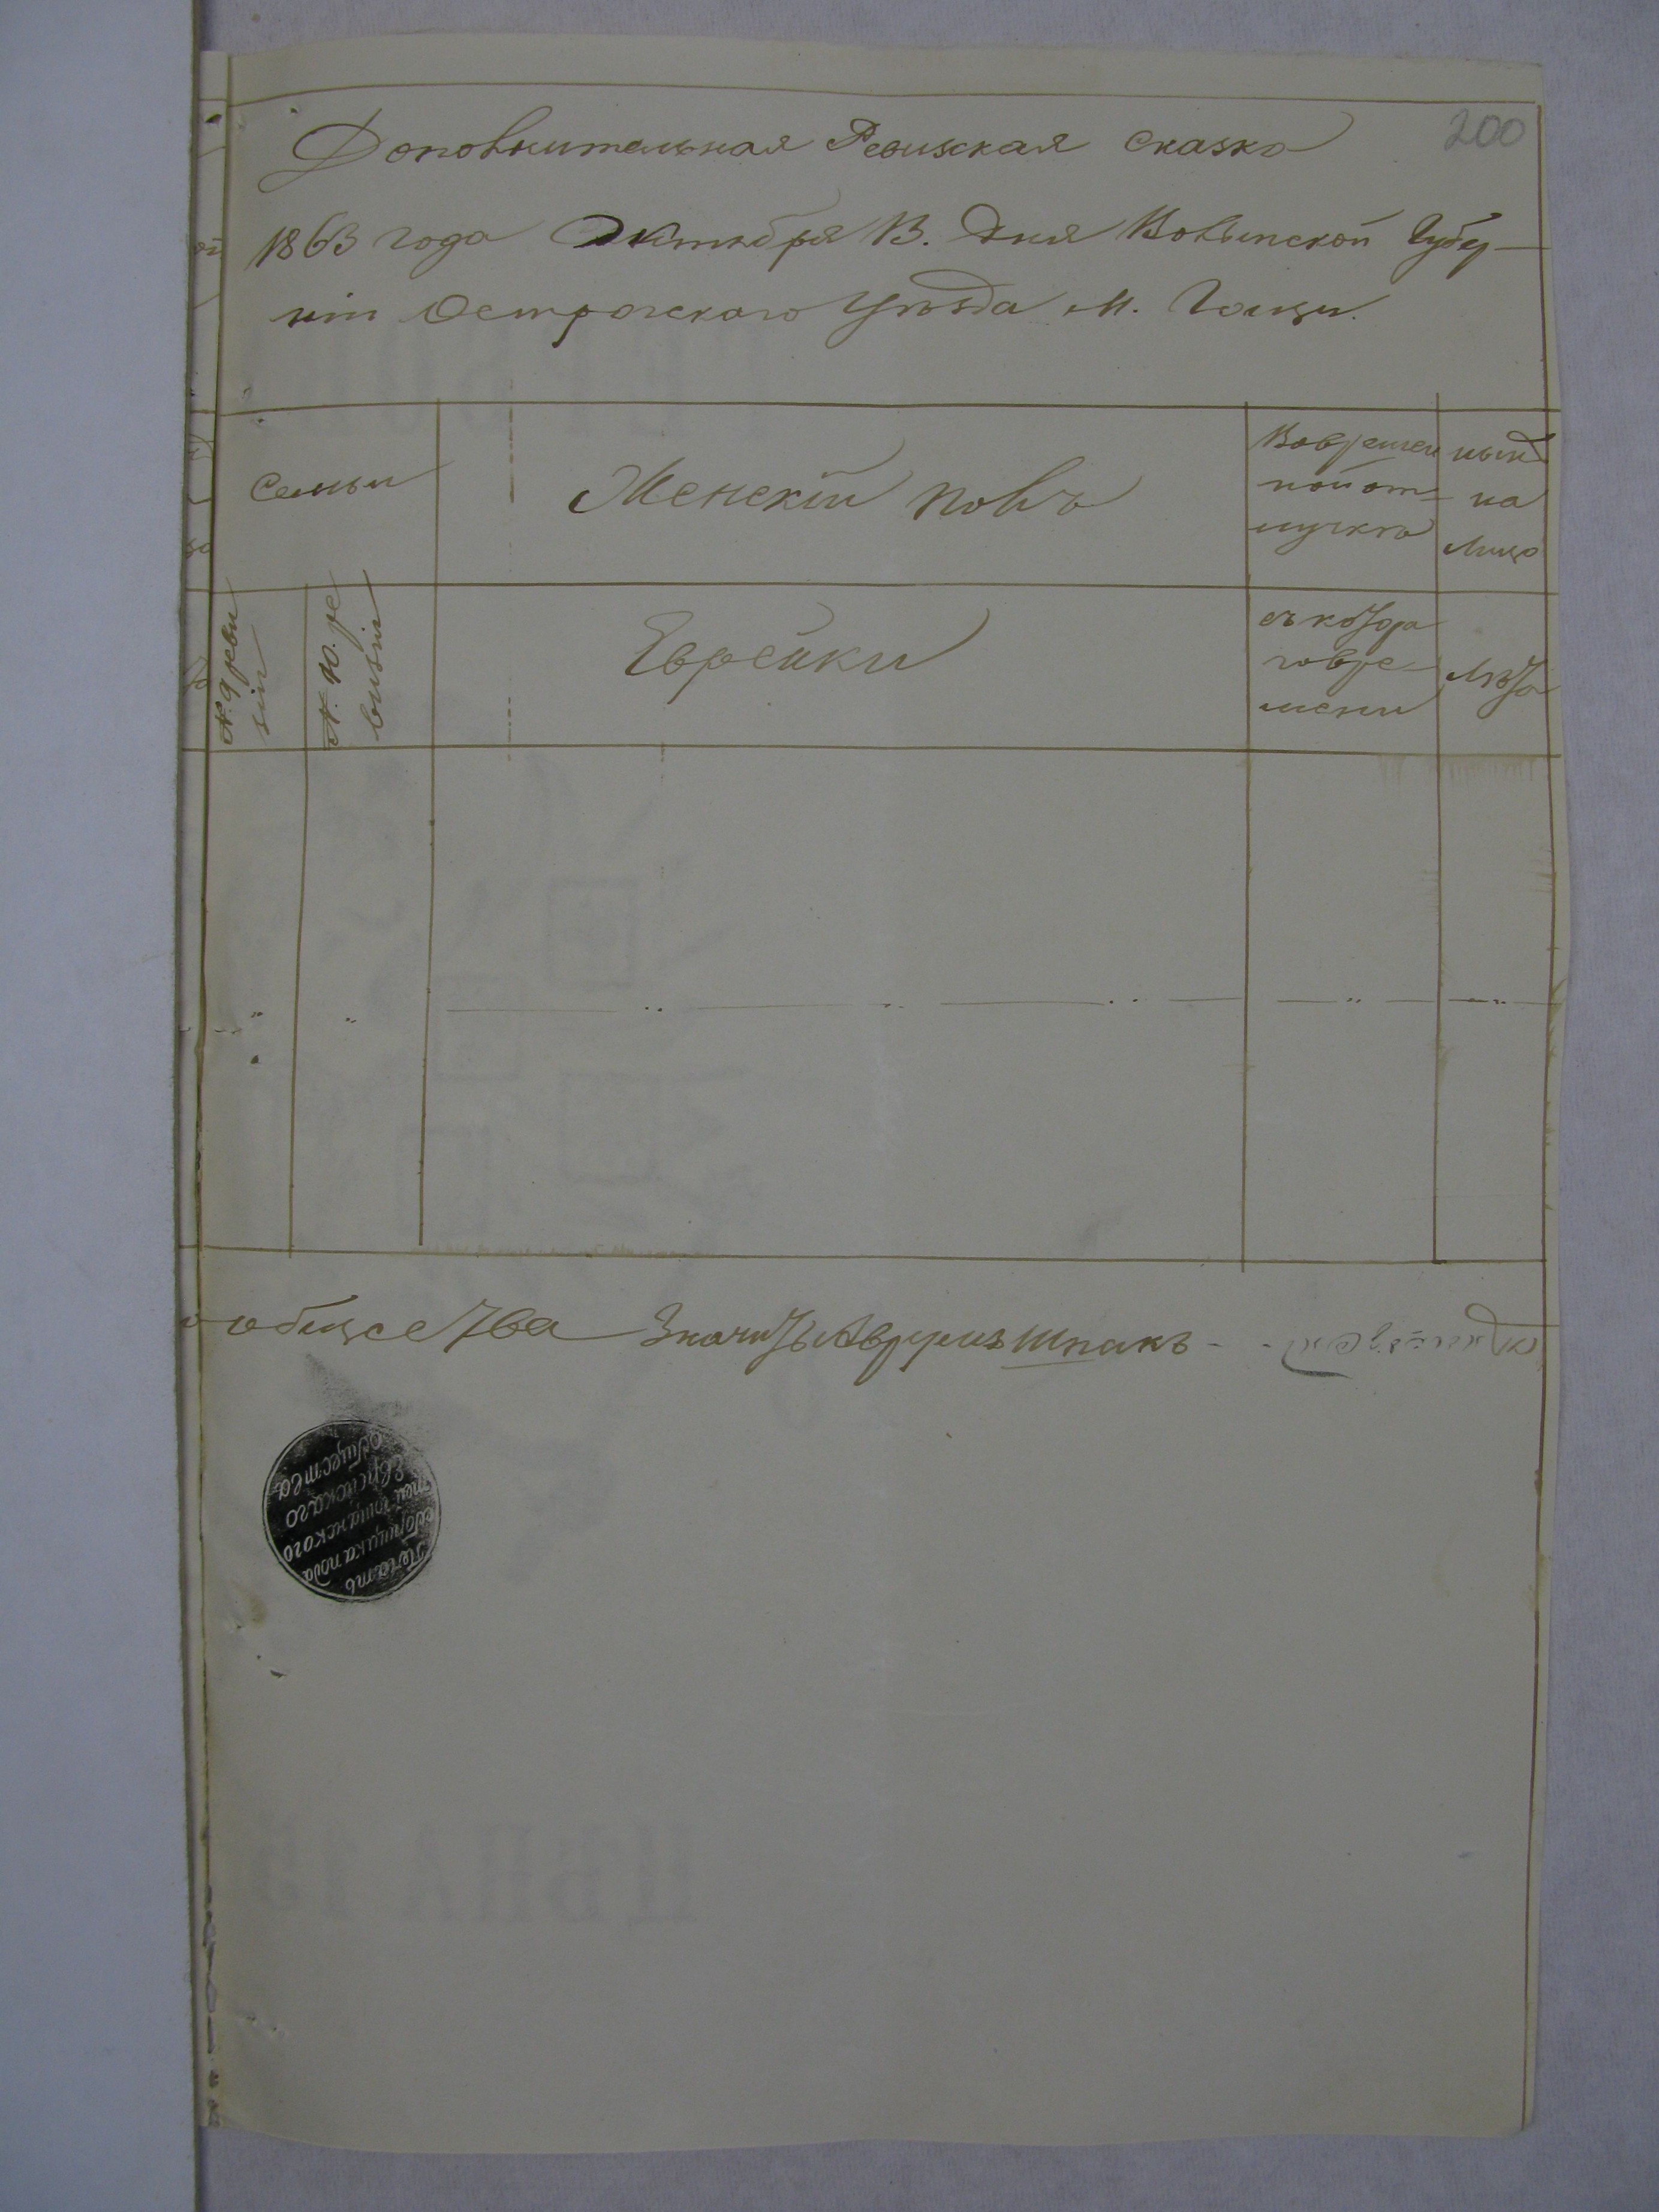 200
Дополнительная Ревизская сказка
1863 года Октября 13. дня Волынской Губер-
ніи Острожскаго Уѣзда М. Гощи.
Семьи
Женскій полъ
Вовремен
ной от-
лучкѣ
нынѣ
на
Лицо
№ 9 реви
зіи
№ 10. ре
визіи
Еврейки
съ котора
го вре-
мени
Лѣта
общества Значитъ Аврумъ Шпакъ - -
Печать
сборщика пода
тей Гощанского
Еврейскаго
Общества